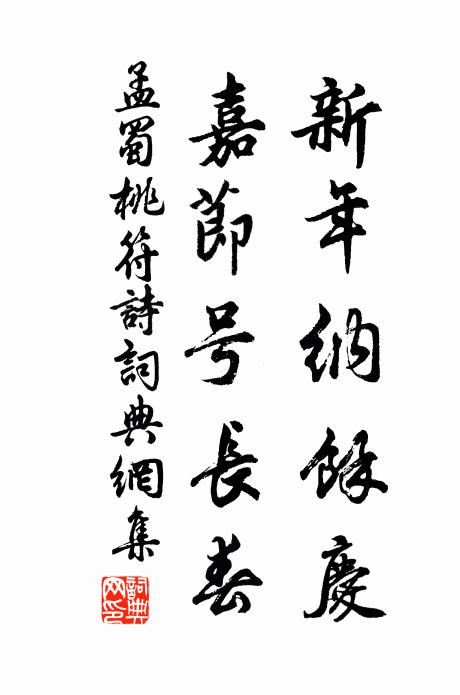 新年納餘慶
嘉節号長春
孟蜀桃符詩詞典網集
詞典網印